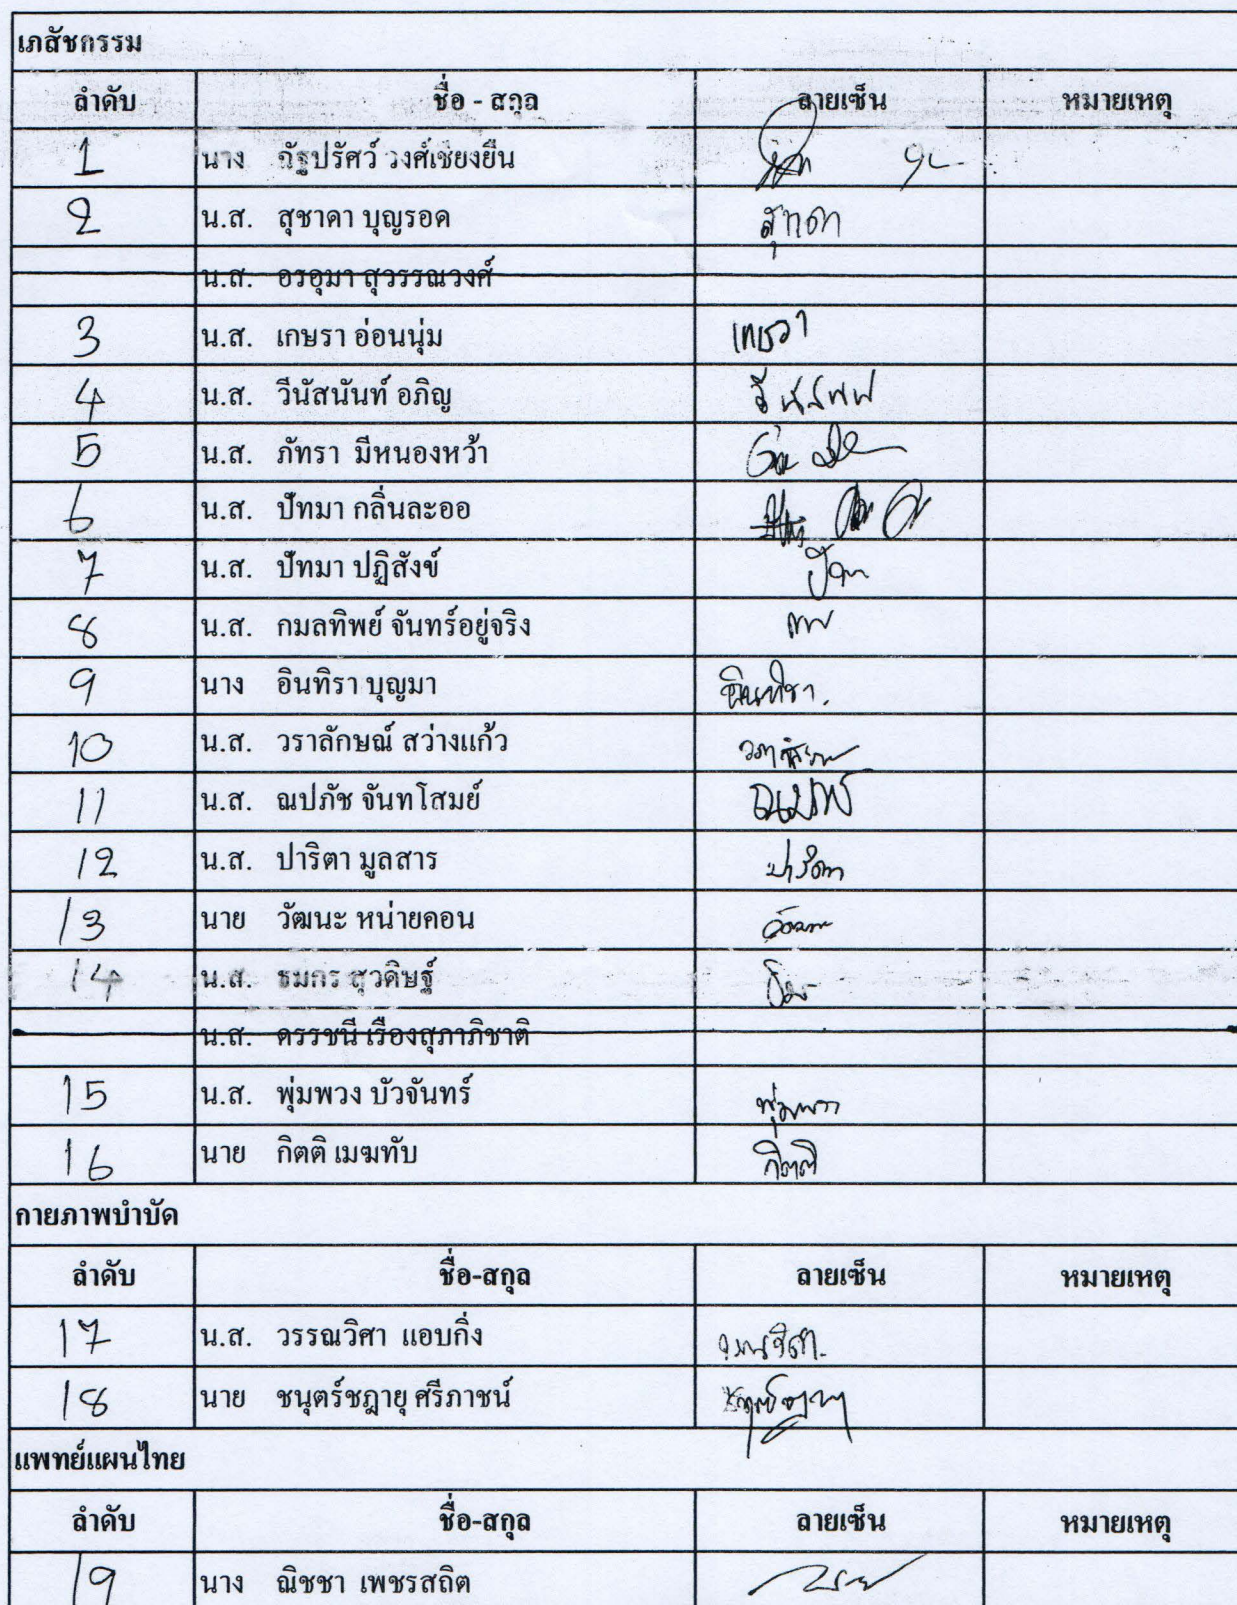 เภสัชกรรม
ลำดับ ชื่อ - สกุล ลายเซ็น หมายเหตุ
1 นาง ณัฐปรัศว์ วงศ์เชียงยืน
2 น.ส. สุชาดา บุญรอด สุชาดา
น.ส. อรอุมา สุวรรณวงศ์
3 น.ส. เกษรา อ่อนนุ่ม เกษรา
4 น.ส. วีนัสนันท์ อภิญ
5 น.ส. ภัทรา มีหนองหว้า
6 น.ส. ปัทมา กลิ่นละออ
7 น.ส. ปัทมา ปฏิสังข์
8 น.ส. กมลทิพย์ จันทร์อยู่จริง
9 นาง อินทิรา บุญมา อินทิรา
10 น.ส. วราลักษณ์ สว่างแก้ว
11 น.ส. ณปภัช จันทโสมย์
12 น.ส. ปาริตา มูลสาร ปาริตา
13 นาย วัฒนะ หน่ายคอน
14 น.ส. ธมกร สุวดิษฐ์
น.ส. ดรรชนี เรืองสุภาภิชาติ
15 น.ส. พุ่มพวง บัวจันทร์ พุ่มพวง
16 นาย กิตติ เมฆทับ กิตติ
กายภาพบำบัด
ลำดับ ชื่อ-สกุล ลายเซ็น หมายเหตุ
17 น.ส. วรรณวิศา แอบกิ่ง
18 นาย ชนุตร์ชฎายุ ศรีภาชน์
แพทย์แผนไทย
ลำดับ ชื่อ-สกุล ลายเซ็น หมายเหตุ
19 นาง ณิชชา เพชรสถิต